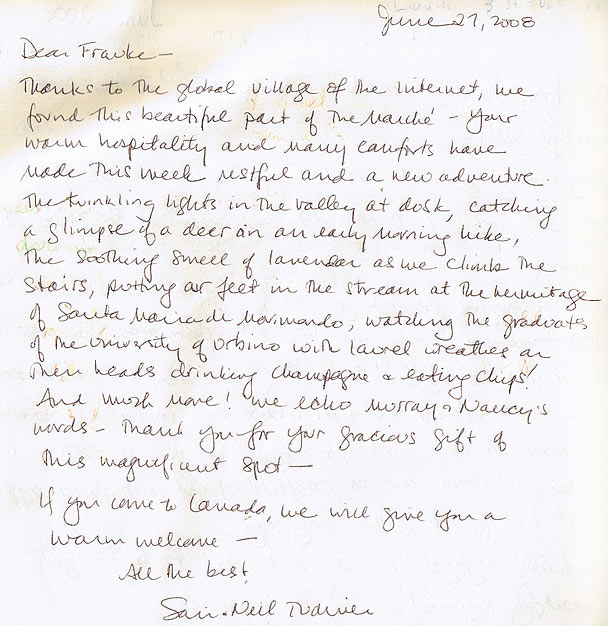 June 27, 2008
Dear Frauke —
Thanks to the global village of the Internet, we
found this beautiful part of the Marché – your
warm hospitality and many comforts have
made this week restful and a new adventure.
The twinkling lights in the valley at dusk, catching
a glimpse of a deer on an early morning hike,
the soothing smell of lavendar as we climb the
stairs, putting our feet in the stream at the hermitage
of Santa Maria de Morimondo, watching the graduates
of the University of Urbino with laurel wreathes on
their heads drinking champagne & eating chips!
And much more! We echo Murray & Nancy's
words – Thank you for your gracious gift of
this magnificant spot —
If you come to Canada, we will give you a
warm welcome —
All the best!
Neil